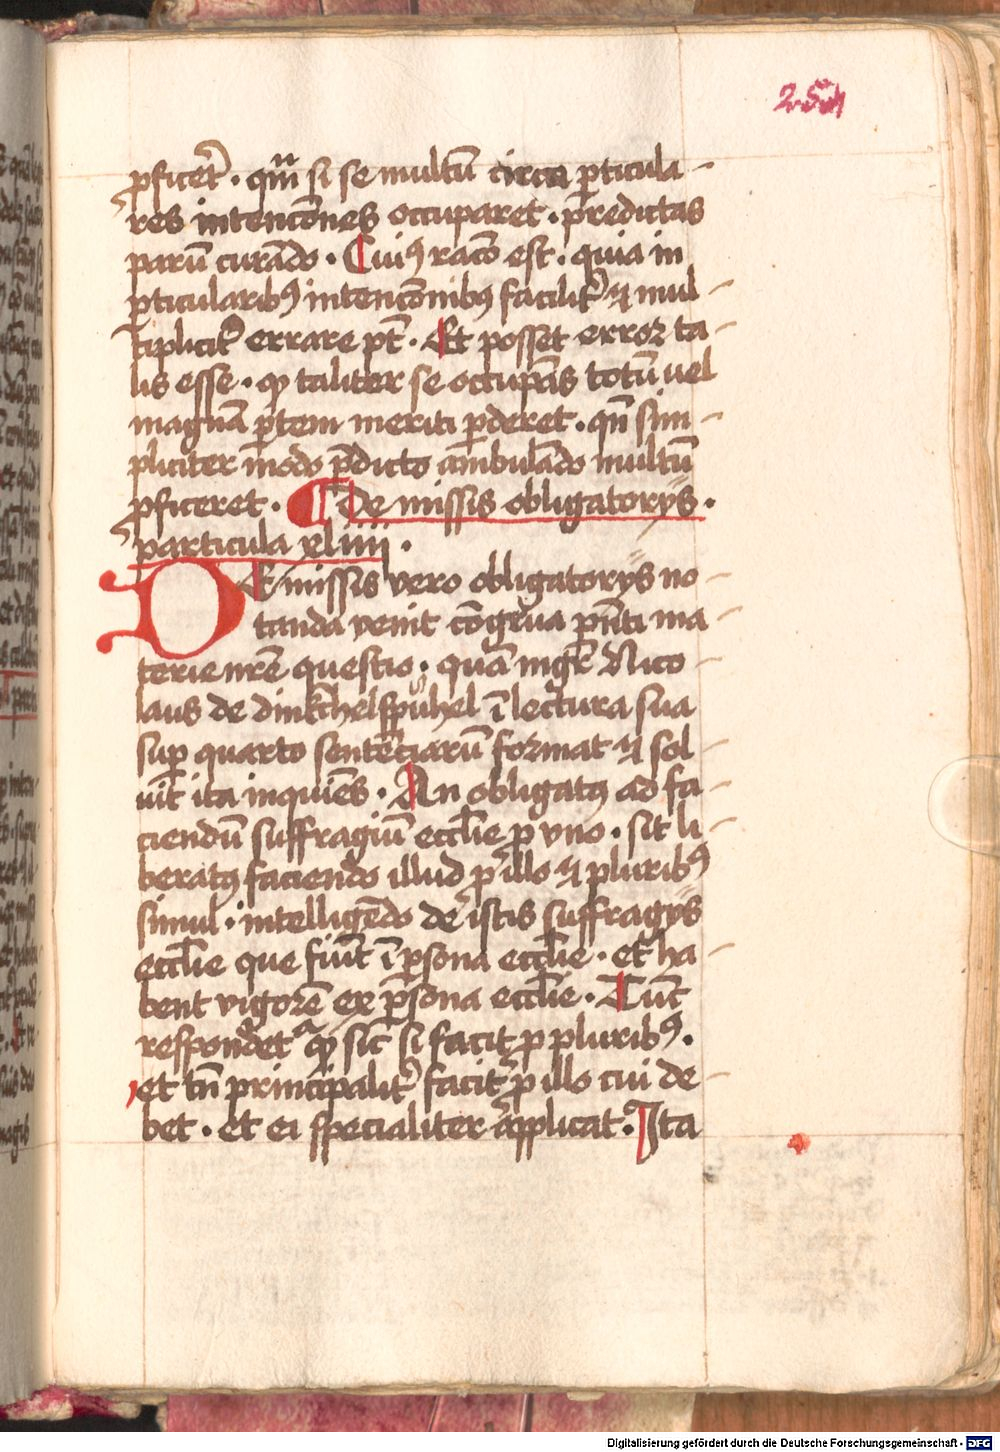 251
ꝓficeret̉ · qm̄ si se multū circa ꝑticula-
res intencōnes occuparet · p̄redictas
parū curādo · Cuiꝰ racō est · quia in
ꝑticularibꝰ intencōnibꝰ facilit̉ ⁊ mul-
tiplicit̉ errare pt̄ · Et posset error ta-
lis esse · ꝙ taliter se occupās totū vel
magnā ꝑtem meriti ꝑderet · qn̄ sim-
pliciter modo p̄dicto ambulādo multū
ꝓficeret · ¶ De missis obligatorijs ·
particula xliiii ·
DE missis vero obligatorijs no-
tanda venit cōgrua pn̄ti ma-
terie nr̄e questio · quā mgr̄ Nico-
laus de dinkchelspuhel ī lectura sua
suꝑ quarto sentēciarū format ⁊ sol-
uit ita inquiēs · An obligatꝰ ad fa-
ciendū suffragiū eccl̄ie ꝓ vno · sit li-
beratꝰ faciendo illud ꝓ illo ⁊ pluribꝰ
simul · intelligēdo de istis suffragijs
eccl̄ie que fiūt ī ꝑsona eccl̄ie · et ha-
bent vigorē ex ꝑsona eccl̄ie · Tūc
respondet̉ ꝙ sic si facit ꝓ pluribꝰ ·
et tn̄ principalit̉ facit ꝓ illo cui de-
bet · et ei specialiter applicat · Ita
Digitalisierung gefördert durch die Deutsche Forschungsgemeinschaft - DFG